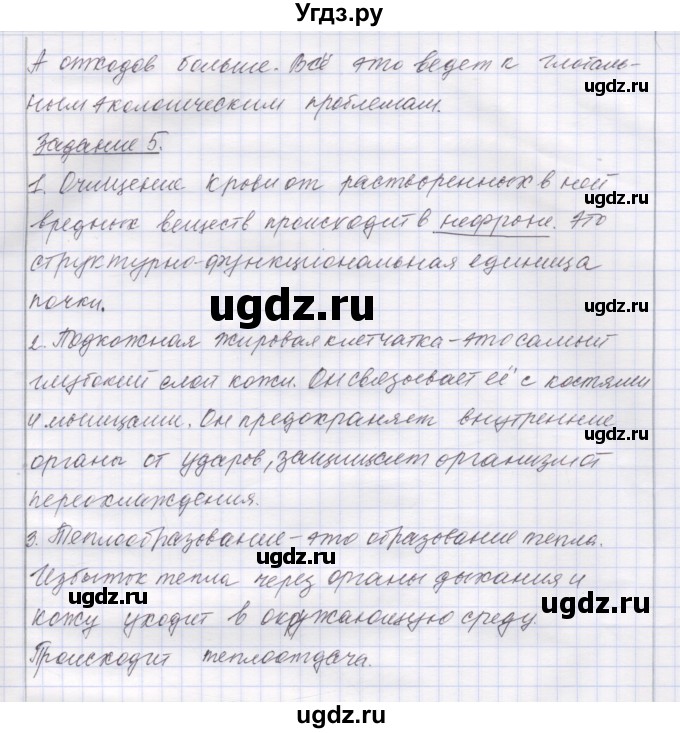 Угдз.ру
А отходов больше. Всё это ведет к глобаль-
ным экологическим проблемам.
Задание 5.
1. Очищение крови от растворенных в ней
вредных веществ происходит в нефроне. Это
структурно-функциональная единица
почки.
ugdz.ru
ugdz.ru
2. Подкожная жировая клетчатка - это самый
глубокий слой кожи. Он связывает её с костями
и мышцами. Он предохраняет внутренние
ugdz.ru
органы от ударов, защищает организм от
переохлаждения.
3. Теплообразование - это образование тепла.
ugdz.ru
Избыток тепла через органы дыхания и
ugdz.ru
ugdz.ru
кожу уходит в окружающую среду.
Происходит теплоотдача.
ugdz.ru